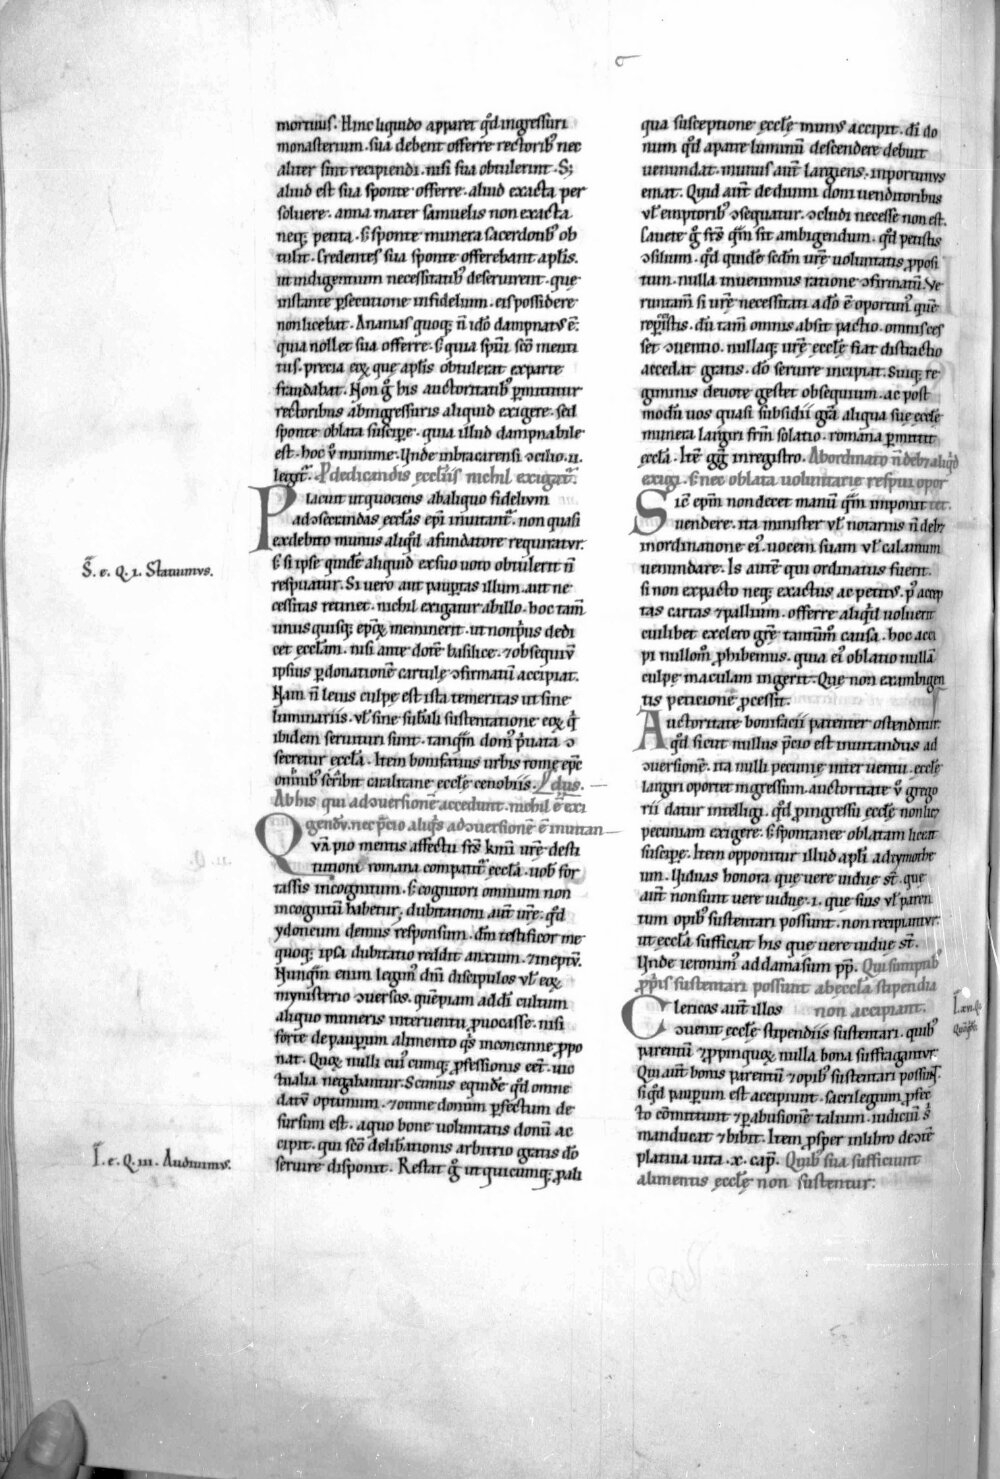 mortuus. Hinc liquido apparet qd̄ ingressuri
monasterium. sua debent offerre rectoribꝰ nec
aliter sint recipiendi. nisi sua obtulerint. Sꝫ
aliud est sua sponte offerre. aliud exacta per
soluere. anna mater samuelis non exacta
neqꝫ petita. s̄ sponte munera sacerdotibꝰ ob
tulit. Credentes sua sponte offerebant apl̄is.
ut indigentium necessitatibꝰ deseruirent. que
instante ꝑsecutione infidelium. eis possidere
non licebat. Ananias quoqꝫ n̄ id̊o dampnatꝰ ē.
quia nollet sua offerre. s̄ quia spūi sc̄o menti
tus. precia eoꝝ que apl̄is obtulerat ex parte
fraudabat. Non g̊ his auctoritatibꝰ ꝑmittitur
rectoribus ab ingressuris aliquid exigere. sed
sponte oblata suscipe. quia illud dampnabile
est. hoc v̊ minime. Unde in bracarensi ↄcilio .ii.
legit᷑. P dedicandis eccl̄iis nichil exigat᷑.
Placuit ut quociens ab aliquo fidelium
ad ↄsecrandas eccl̄as epī inuitant᷑. non quasi
ex debito munus aliqͥd a fundatore requirat᷑.
s̄ si ipse quidē aliquid ex suo uoto obtulerit n̄
respuatur. Si uero aut pauꝑtas illum. aut ne
cessitas retinet. nichil exigatur ab illo. hoc tam̄
unusquisqꝫ epōꝝ meminerit. ut non pͥus dedi
cet eccl̄am. nisi ante dotē basilice. ⁊ obsequiū
ipsius ꝑ donationē cartulę ↄfirmatū accipiat.
Nam n̄ leuis culpę est ista temeritas ut sine
luminariis. ul̄ sine sub̄ali sustentatione eoꝝ qͥ
ibidem seruituri sunt. tanq̄m domꝰ pͥuata ↄ
secretur eccl̄a. Item bonifatius urbis romę epc̄
omībꝰ
Ab his qui ad ↄuersionē accedunt. nichil ē exi
gendū. nec p̄cio aliqͥs ad ↄuersionē ē inuitan
Quā pio mentis affectu
tutioni romana compatit᷑ eccl̄a. uob̄ for
tassis incognitum. s̄ cognitori omnium non
incognitū habetur. dubitationi aut̄ ur̄e. qd̄
ydoneum demus responsum. dm̄ testificor me
quoqꝫ ipsa dubitatio reddit anxium. ⁊ ineptū.
Nunq̄m enim legimꝰ dn̄i discipulos ul̄ eoꝝ
mynisterio ↄuersos. quēpiam ad dī cultum
aliquo muneris interuentu ꝓuocasse. nisi
forte de pauꝑum alimento qͥs inconcinne ꝓpo
nat. Quoꝝ nulli cuiꝰ cumqꝫ ꝓfessionis eēt. uic
tualia negabantur. Scimus equidē qd̄ omne
datū optimum. ⁊ omne donum ꝑfectum de
sursum est. a quo bone uoluntatis donū ac
cipit. qui sc̄o delib̄ationis arbitrio gratis dō
seruire disponit. Restat g̊ ut quicumqꝫ ꝓ ali
qua susceptione eccl̄ę munꝰ accipit. dī do
num qd̄ a patre luminū descendere debuit
uenundat. munus aut̄ largiens. inportunꝰ
emat. Quid aut̄ de diuini doni uenditoribus
ul̄ emptoribꝰ ↄsequatur. ↄcludi necesse non est.
Cauete g̊ fr̄s q̄m sit ambigendum. qd̄ petistis
ↄsilium. qd̄ quidē scd̄m ur̄e uoluntatis ꝓposi
tum. nulla inuenimus ratione ↄfirmatū. Ve
runtam̄ si ur̄e necessitati adō ē oportunꝰ quē
repistis. dū tam̄ omnis absit pactio. omnis ces
set ↄuentio. nullaqꝫ ur̄e eccl̄ę fiat distractio
accedat gratis. dō seruire incipiat. Suiqꝫ re
giminis deuote gestet obsequium. ac post
modū uos quasi subsidii gr̄a aliqua suę eccl̄ę
munera largiri fr̄m solatio. romana ꝑmittit
eccl̄a. Itē gg̊ in registro. Ab ordinato n̄ debꝫ aliqͥd
exigi. s̄ nec oblata uoluntarie respui opor
Sic̄ epm̄ non decet manū q̄m imponit tet.
uendere. ita minister ul̄ notarius n̄ debꝫ
in ordinatione eiꝰ uocem suam ul̄ calamum
uenundare. Is autē qui ordinatus fuerit.
si non ex pacto neqꝫ exactus ac petitꝰ. pꝰ accep
tas cartas ⁊ pallium. offerre aliqͥd uoluerit
cuilibet ex clero gr̄e tantūmͦ causa. hoc acci
pi nullomͦ ꝓhibemus. quia eiꝰ oblatio nullā
culpę maculam ingerit. Que non ex ambigen
tis peticione ꝓcessit.
Auctoritate bonifacii patenter ostenditur.
qd̄ sicut nullus p̄cio est inuitandus ad
ↄuersionē. ita nulli pecunię interuentu. eccl̄ę
largiri oportet ingressum. auctoritate v̊ grego
rii datur intelligi. qd̄ ꝓ ingressu eccl̄ę non licꝫ
pecuniam exigere. s̄ spontanee oblatam liceat
suscipe. Item opponitur illud apl̄i ad tymothe
um. Uiduas honora que uere uidue st̄. que
aut̄ non sunt uere uidue. i. que suis ul̄ paren
tum opibꝰ sustentari possunt. non recipiantur.
ut eccl̄a sufficiat his que uere uidue st̄.
Unde ieronimꝰ ad damasum pp̄. Qui sumptibꝰ
ꝓpͥis sustentari possunt ab eccl̄a stipendia
Clericos aut̄ illos non accipiant.
ↄuenit eccl̄ę stipendiis sustentari. quibꝰ
parentū ⁊ ꝓpinquoꝝ nulla bona suffragantur.
Qui aut̄ bonis parentū ⁊ opibꝰ sustentari possunt.
si qd̄ pauꝑum est accipiunt. sacrilegium ꝓfec
to cōmittunt ⁊ ꝑ abusionē talium. iudiciū sͥ
manducat ⁊ bibit. Item ꝓsper in libro de ↄtē
platiua uita .x. cap̄. Quibꝰ sua sufficiunt
alimentis eccl̄ę non sustentur.
S̄. e. Q. 1. Statuimus.
I. e. Q. iii. Audiuimus.